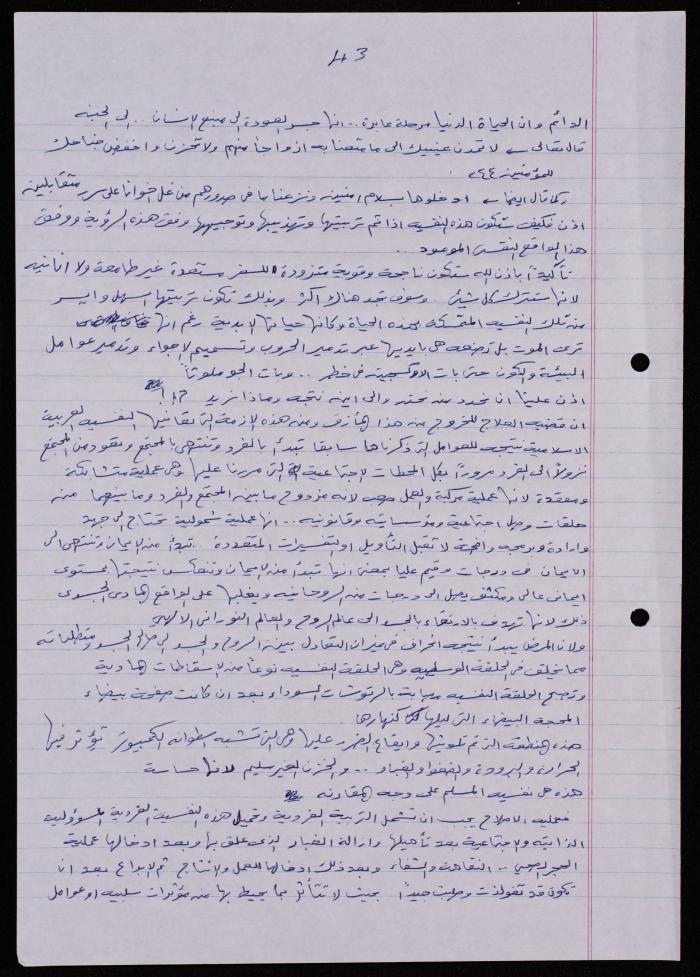 43
الدائم وان الحياة الدنيا مرحلة عابرة .. انها جسر العودة الى منبع الإنسان .. الى الجنة
قال تعالى لا تمدن عينيك الى ما متعنا به ازواجاً منهم ولا تحزن واخفض جناحك
للمؤمنين ٤٤
كما قال ايضا ادخلوها بسلام امنين ونزعنا ما في صدورهم من غل اخوانا على سرر متقابلين
اذن فكيف ستكون هذه النفسية اذا تم تربيتها وتهذيبها وتوجيهها وفق هذه الرؤية ووفق
هذا الواقع النفسي الموعود ..
تأكيداً باذن الله ستكون ناجحة وقوية متزودة للسفر مستعدة غير طامعة ولا انانية
لانها ستترك كل شيئ . وسوف تجد هناك اكثر وبذلك تكون تربيتها اسهل وايسر
من تلك النفسية المتمسكة بهذه الحياة وكانها حياتها الابدية رغم انها
ترى الموت بل تصنعه هي بايديها عبر تدمير الحروب وتسميم الاجواء وتدمير عوامل
البيئة والكون حتى بات الاوكسجين في خطر .. وبات الجو ملوثاً
اذن علينا ان نحدد من نحن والى اين نتجه وماذا نريد ؟!!
ان قضية العلاج للخروج من هذا المأزق ومن هذه الازمة التي تعانيها النفسية العربية
الاسلامية نتيجة للعوامل التي ذكرناها سابقا تبدأ بالفرد وتنتهي بالمجتمع وتعود من المجتمع
نزولاً الى الفرد مروراً بكل المحطات الاجتماعية التي مررنا عليها وهي عملية متشابكة
ومعقدة لانها عملية مركبة والعمل لانه مزدوج ما بين المجتمع والفرد وما بينهما من
حلقات وصل اجتماعية ومؤسساتية وقانونية ... انها عملية شمولية تحتاج الى جهد
وارادة وبرمجة واضحة لا تقبل التأويل او التفسيرات المتعددة .. تبدأ من الايمان وتنتهي الى
الايمان في درجات وقيم عليا بمعنى انها تبدأ من الايمان وتنعكس نتيجتها بمستوى
ايماني عالي ومكثف يصل الى درجات من الروحانية ويغلبها على الواقع المادي الجسدي
ذلك لانها تهدف بالارتقاء بالجسد الى عالم الروح والعالم النوراني الالهي
ولان المرض يبدأ نتيجة انحراف في ميزان التعادل بين الروح والجسد لصالح الجسد ومتطلباته
مما يخلق في الحلقة الوسطية وهي الحلقة النفسية نوعاً من الاسقاطات المادية
وتصبح الحلقة النفسية مصابة بالرتوشات السوداء بعد ان كانت صفحة بيضاء
المحجة البيضاء التي ليلها كنهارها.
هذه المنطقة التي تم تلويثها وايقاع الضرر عليها وهي التي تشبه اسطوانة الكمبيوتر تؤثر فيها
الحرارة والبرودة والضغط والغبار ... والخزن الغير سليم لانها حساسة
هذه هي نفسية المسلم على وجه المقارنة
فعملية الاصلاح يجب ان تشمل التربية الفردية وتحميل هذه النفسية الفردية المسؤولية
الذاتية والاجتماعية بعد تأهيلها وازالة الغبار الذي علق بها وبعد ادخالها عملية
الحجر الصحي .. النقاهة والشفاء وبعد ذلك ادخالها للعمل والانتاج ثم الابداع بعد ان
تكون قد تفولذت وصلبت جيداً . بحيث لا تتأثر بما يحيط بها من مؤثرات سلبية او عوامل